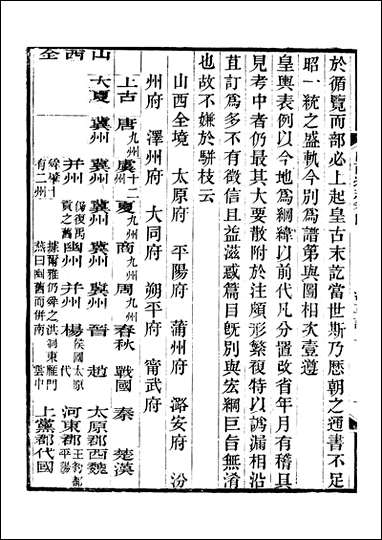 於循覽而部必上起皇古末訖當世斯乃歷朝之通書不足
昭一統之盛軌今別為譜第與圖相次壹遵
皇輿表例以今地為綱緯以前代凡分置改省年月有稽具
見考中者仍最其大要散附於注頗形繁複特以譌漏相沿
直訂為多不有徵信且益滋惑篇目既別與宏綱巨旨無淆
也故不嫌於駢枝云
山西全境 太原府 平陽府 蒲州府 潞安府 汾
州府 澤州府 大同府 朔平府 甯武府
上古 唐九州 虞十二州 夏九州 商九州 周九州 春秋 戰國 秦 楚漢
山 大夏 冀州 冀州 冀州 冀州 冀州 晉 趙 太原郡 西魏
西 并州 幽州 并州 楊 代 河東郡 王豹都平陽
全 上黨郡 代國